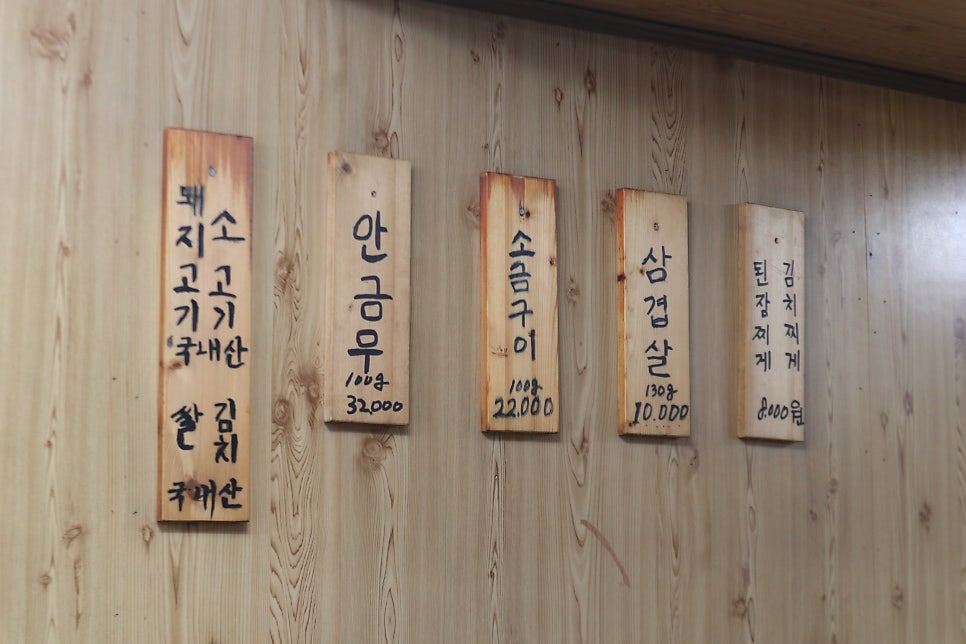 돼지고기
소고기
국내산
쌀
김치
국내산
안금무
100g
32,000
소금구이
100g
22.000
삼겹살
130g
10.000
된장찌게
김치찌게
8.000원